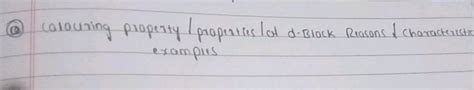 @ colouring property / properties / of d-Block Reasons & characteristic
examples